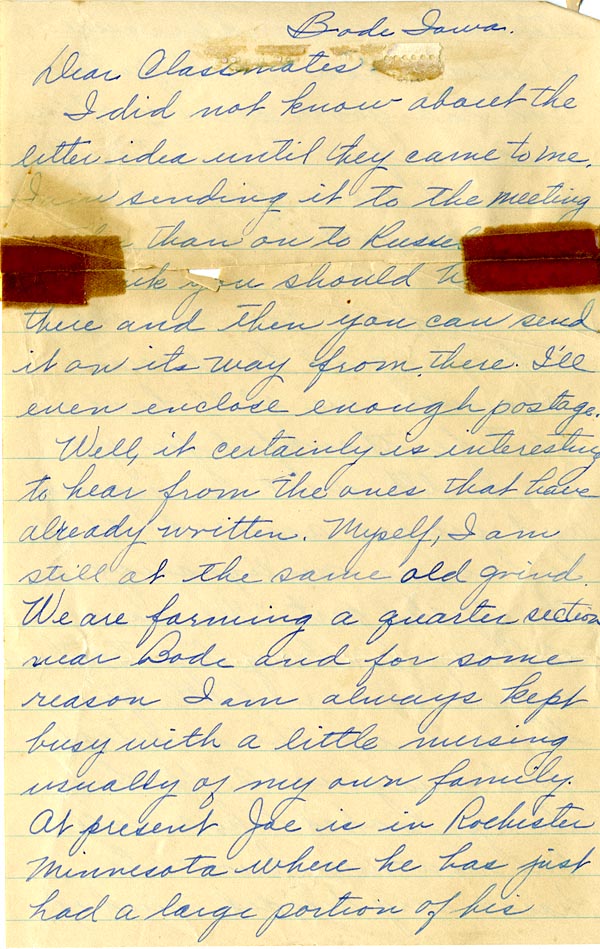 Bode Iowa.
Dear Classmates
I did not know about the
letter idea until they came to me.
I am sending it to the meeting
than on to Russel
you should
there and then you can send
it on its way from there. I'll
even enclose enough postage.
Well, it certainly is interesting
to hear from the ones that have
already written. Myself, I am
still at the same old grind.
We are farming a quarter section
near Bode and for some
reason I am always kept
busy with a little nursing
usually of my own family.
At present Joe is in Rochester
Minnesota where he has just
had a large portion of his